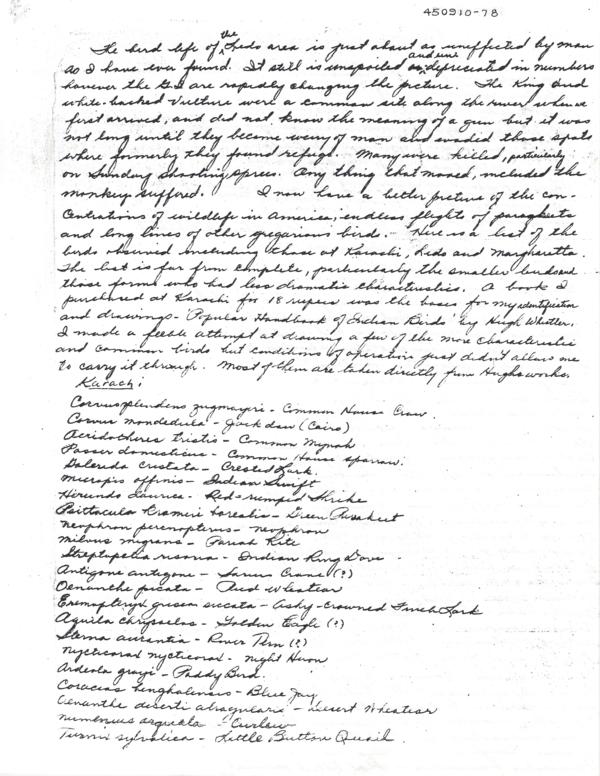 450910-78
The bird life of the Ledo area is just about as uneffected by man
as I have ever found. It still is unspoiled and undepreciated in numbers
however the G.I. are rapidly changing the picture. The King and
white-backed Vulture were a common site along the river when we
first arrived, and did not know the meaning of a gun but it was
not long until they become weary of man and evaded those spots
where formerly they found refuge. Many were killed, particularly
on Sunday Shooting sprees. Any thing that moved, included the
monkey suffered. I now have a better picture of the con-
centrations of wildlife in America; endless flights of parakeets
and long lines of other gregarious bird. - Here is a list of the
birds observed including those at Karachi, Ledo and Margharetta.
The list is far from complete, particularly the smaller birds and
those forms who had less dramatic characteristics. A book I
purchased at Karachi for 18 rupees was the bases for my identification
and drawings - Popular Handbook of Indian Birds by Hugh Whistler.
I made a feeble attempt at drawing a few of the more characteristic
and common birds but conditions of operation just didn't allow me
to carry it through. Most of them are taken directly from Hughs works.
Karachi
Corvus splendens zugmayeri - Common House Crow.
Corvus mondedula - Jack daw (Cairo)
Acridotheres tristis - Common Mynah.
Passer domesticus - Common House Sparrow.
Galerida cristata - Crested Lark.
Micropis affinis - Indian Swift
Hirundo daurica - Red-rumped Shrike
Psittacula krameri borealis - Green Parakeet
Neophron percnopterus - Neophron
Milvus migrans - Pariah Kite
Streptopelia risoria - Indian Ring Dove
Antigone antigone - Sarus Crane (?)
Oenanthe picata - Pied Wheatear
Eremopteryx grisea siccata - Ashy-crowned Finch Lark
Aquila chrysaelos - Golden Eagle (?)
Sterna aurantia - River Tern (?)
Nycticorax nycticorax - Night Heron
Ardeola grayi - Paddy Bird.
Coracias benghalensis - Blue Jay
Oenanthe deserti atrogularis - Desert Wheatear
Numenius arquata - Curlew
Turnix sylvatica - Little Button Quail.